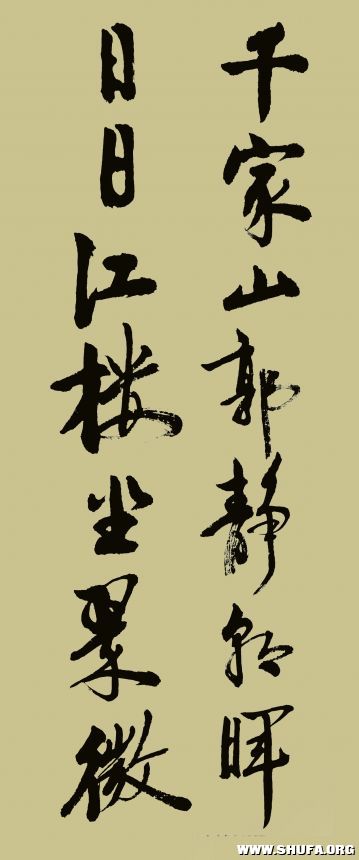 千家山郭静朝晖
日日江楼坐翠微
WWW.SHUFA.ORG